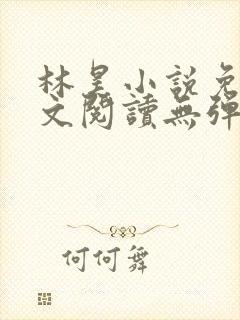 林昊小說免
文閱讀無彈
何何舞